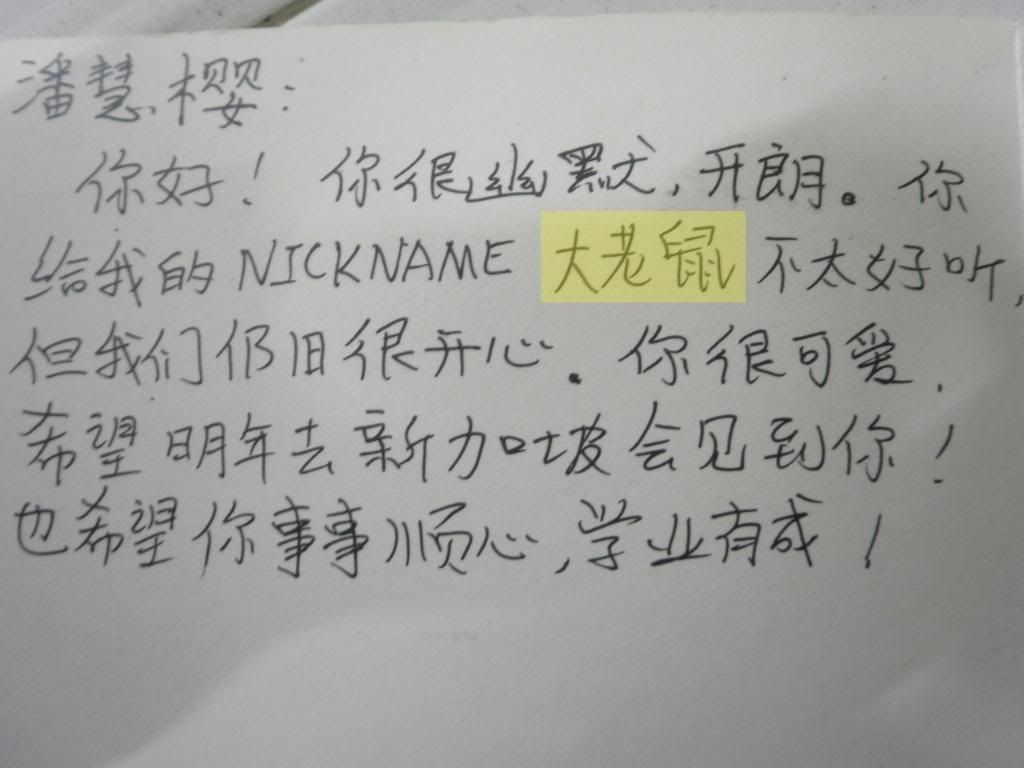 潘慧樱:
你好! 你很幽默,开朗。你
给我的NICKNAME 大老鼠 不太好听,
但我们仍旧很开心。你很可爱,
希望明年去新加坡会见到你!
也希望你事事顺心,学业有成!